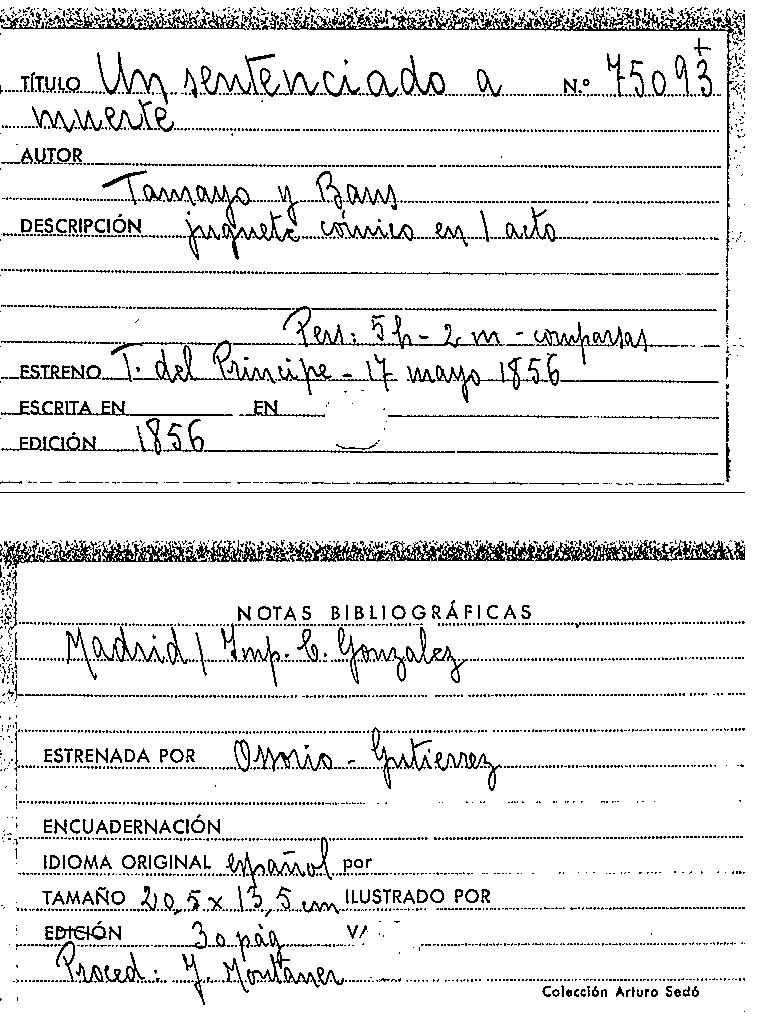 TÍTULO Un sentenciado a N.º 75093
muerte
AUTOR
Tamayo y Baus
DESCRIPCIÓN juguete cómico en 1 acto
Pers: 5 h - 2 m - comparsas
ESTRENO T. del Principe - 17 mayo 1856
ESCRITA EN EN
EDICIÓN 1856
NOTAS BIBLIOGRÁFICAS
Madrid / Imp. C. Gonzalez
ESTRENADA POR Ossorio - Gutierrez
ENCUADERNACIÓN
IDIOMA ORIGINAL español por
TAMAÑO 20,5 x 13,5 cm ILUSTRADO POR
EDICIÓN 30 pág
Proced: J. Montaner
Colección Arturo Sedó